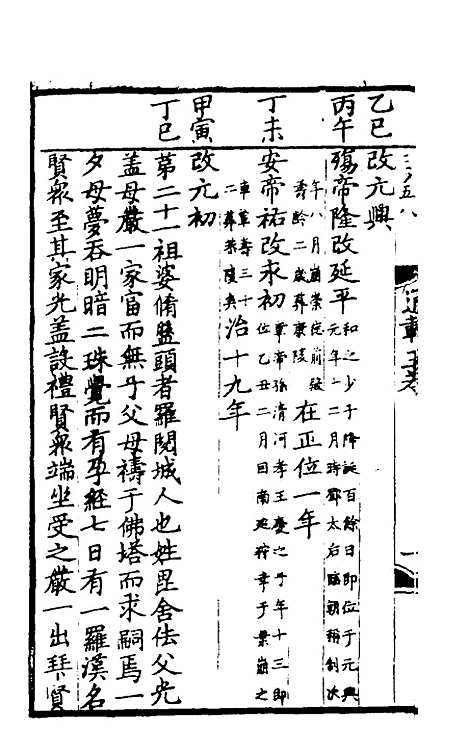 乙巳改元興
丙午殤帝隆改延平和之少子降誕百餘日即位于元興
元年十二月時鄧太后臨朝稱制次
年八月崩崇德前殿
壽齡二歲葬康陵在正位一年
丁未安帝祐改永初章帝孫清河孝王慶之子年十三即
位乙丑二月因南巡狩幸于葉崩之
車輦壽三十
二葬恭陵矣治十九年
甲寅改元初
丁巳第二十一祖婆脩盤頭者羅閱城人也姓毘舍佉父光
蓋母嚴一家富而無子父母禱于佛塔而求嗣焉一
夕母夢吞明暗二珠覺而有孕經七日有一羅漢名
賢衆至其家光蓋設禮賢衆端坐受之嚴一出拜賢